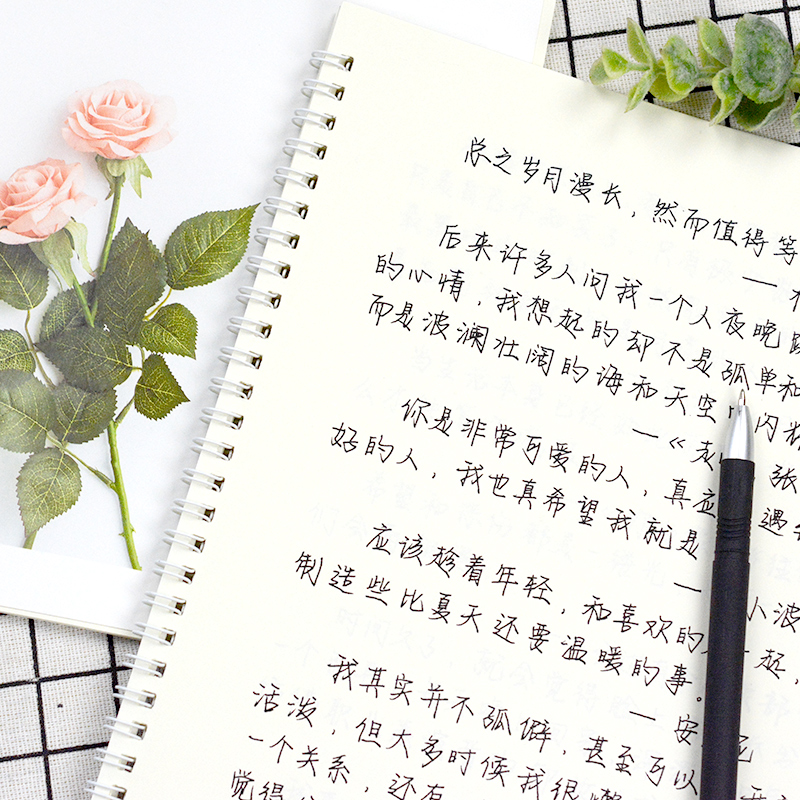 总之岁月漫长，然而值得等
后来许多人问我一个人夜晚
的心情，我想起的却不是孤单和
而是波澜壮阔的海和天空 闪
—《
你是非常可爱的人，真应 遇
好的人，我也真希望我就是
应该趁着年轻，和喜欢的 起，
制造些比夏天还要温暖的事。
— 安
我其实并不孤僻，甚至可以
活泼，但大多时候我很懒
一个关系，还有
觉得